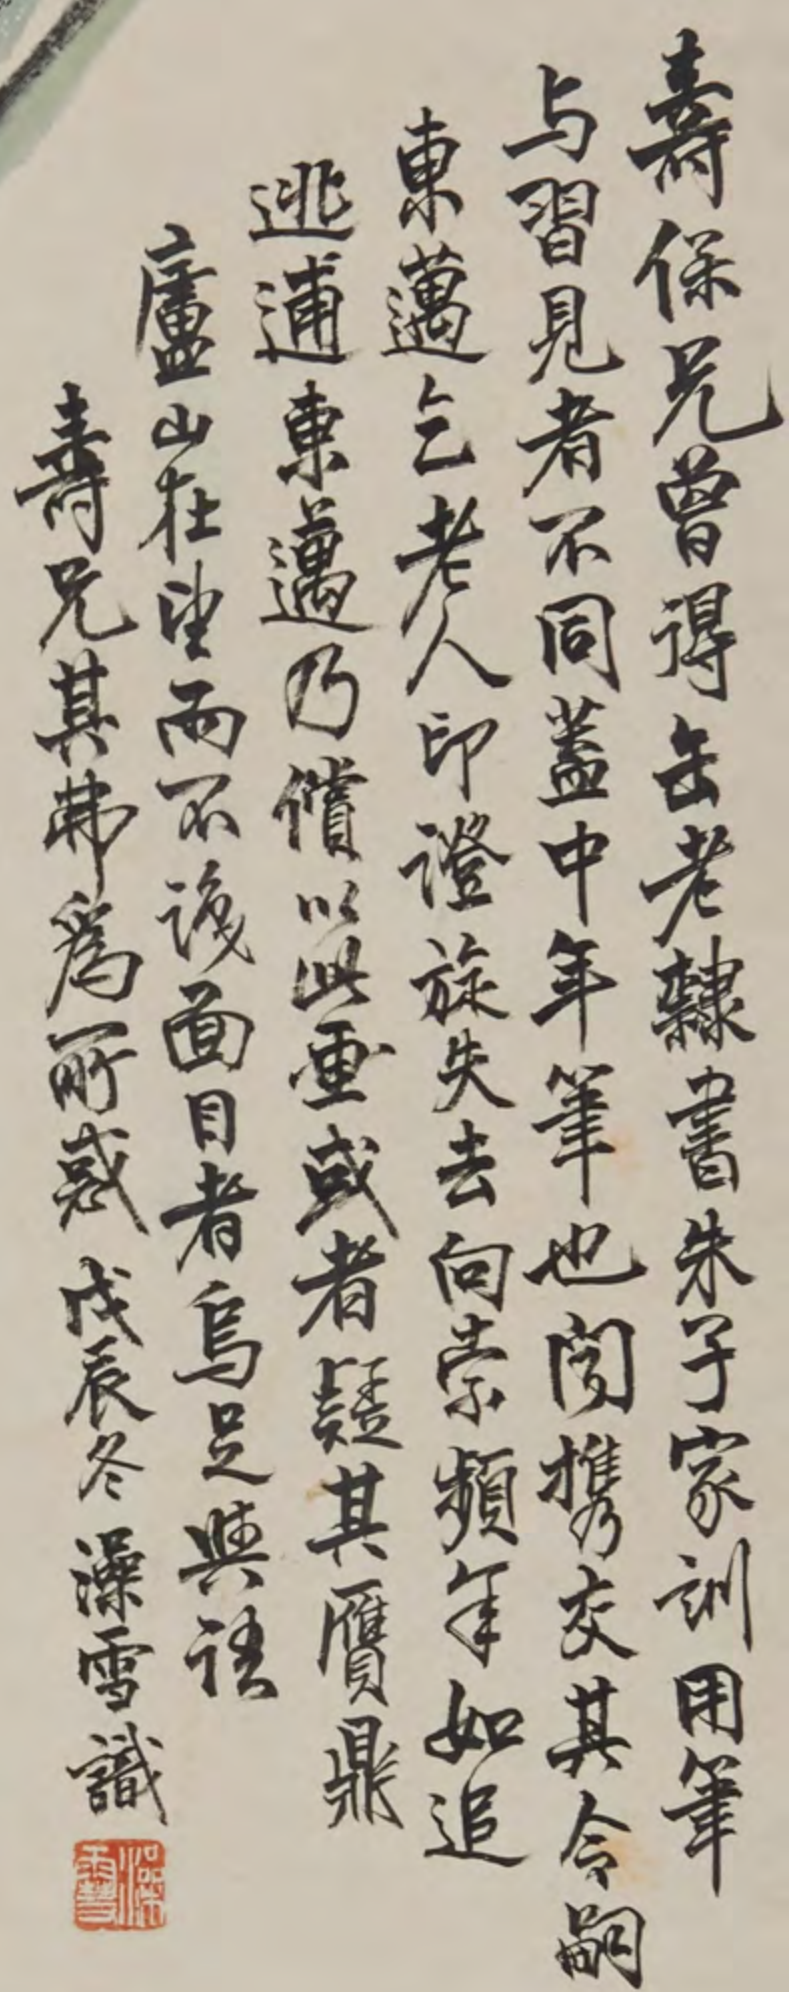 壽保兄曾得缶老隸書朱子家訓用筆
与習見者不同蓋中年筆也間携交其令嗣
東邁乞老人印證旋失去向索頻年如追
逃逋東邁乃償以此畫或者疑其贋鼎
廬山在望而不識面目者烏足與語
壽兄其弗為所惑 戊辰冬 澡雪識
澡雪